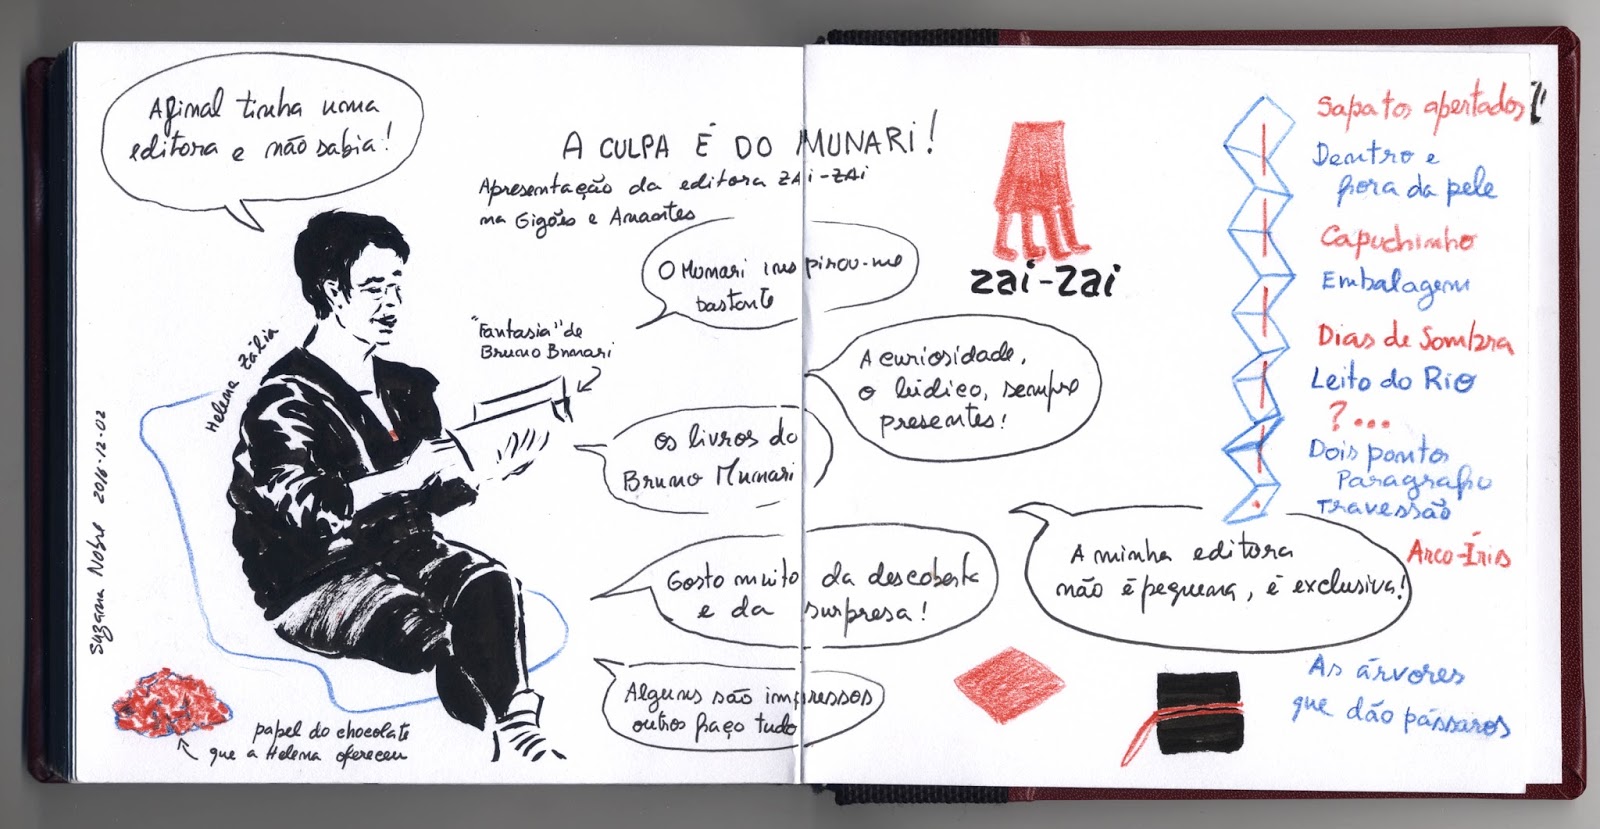 Afinal tinha uma
editora e não sabia!
A CULPA É DO MUNARI!
Apresentação da editora ZAI-ZAI
na Gigões e Anantes
O Munari inspirou-me
bastante
"Fantasia" de
Bruno Bunari
Helena Zália
Suzana Nobre 2016-12-02
A curiosidade,
o lúdico, sempre
presentes!
Os livros do
Bruno Munari
Gosto muito da descoberta
e da surpresa!
Alguns são impressos
outros faço tudo
papel do chocolate
que a Helena ofereceu
zai-zai
A minha editora
não é pequena, é exclusiva!
Sapatos apertados
Dentro e
fora da pele
Capuchinho
Embalagem
Dias de Sombra
Leito do Rio
?...
Dois pontos
Paragrafo
Travessão
Arco-Íris
As árvores
que dão pássaros